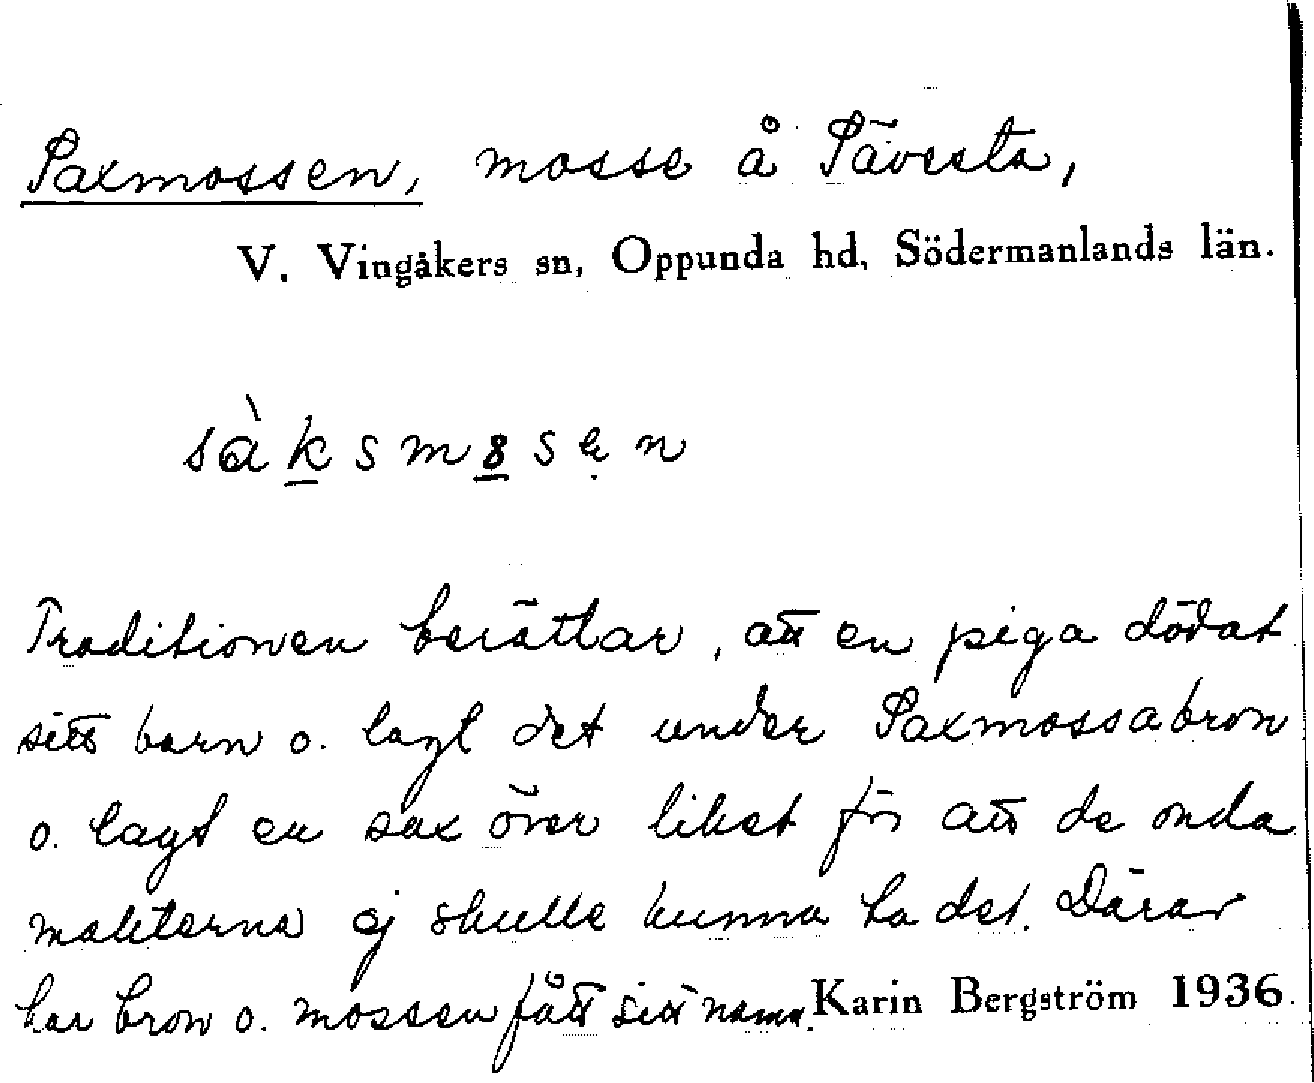 Saxmossen, mosse å Sävesta,
V. Vingåkers sn, Oppunda hd, Södermanlands län.
sàksm8sęn
Traditionen berättar, att en piga dödat
sitt barn o. lagt det under Saxmossabron
o. lagt en sax över liket för att de onda
makterna ej skulle kunna ta det. Därav
har bron o. mossen fått sitt namn. Karin Bergström 1936